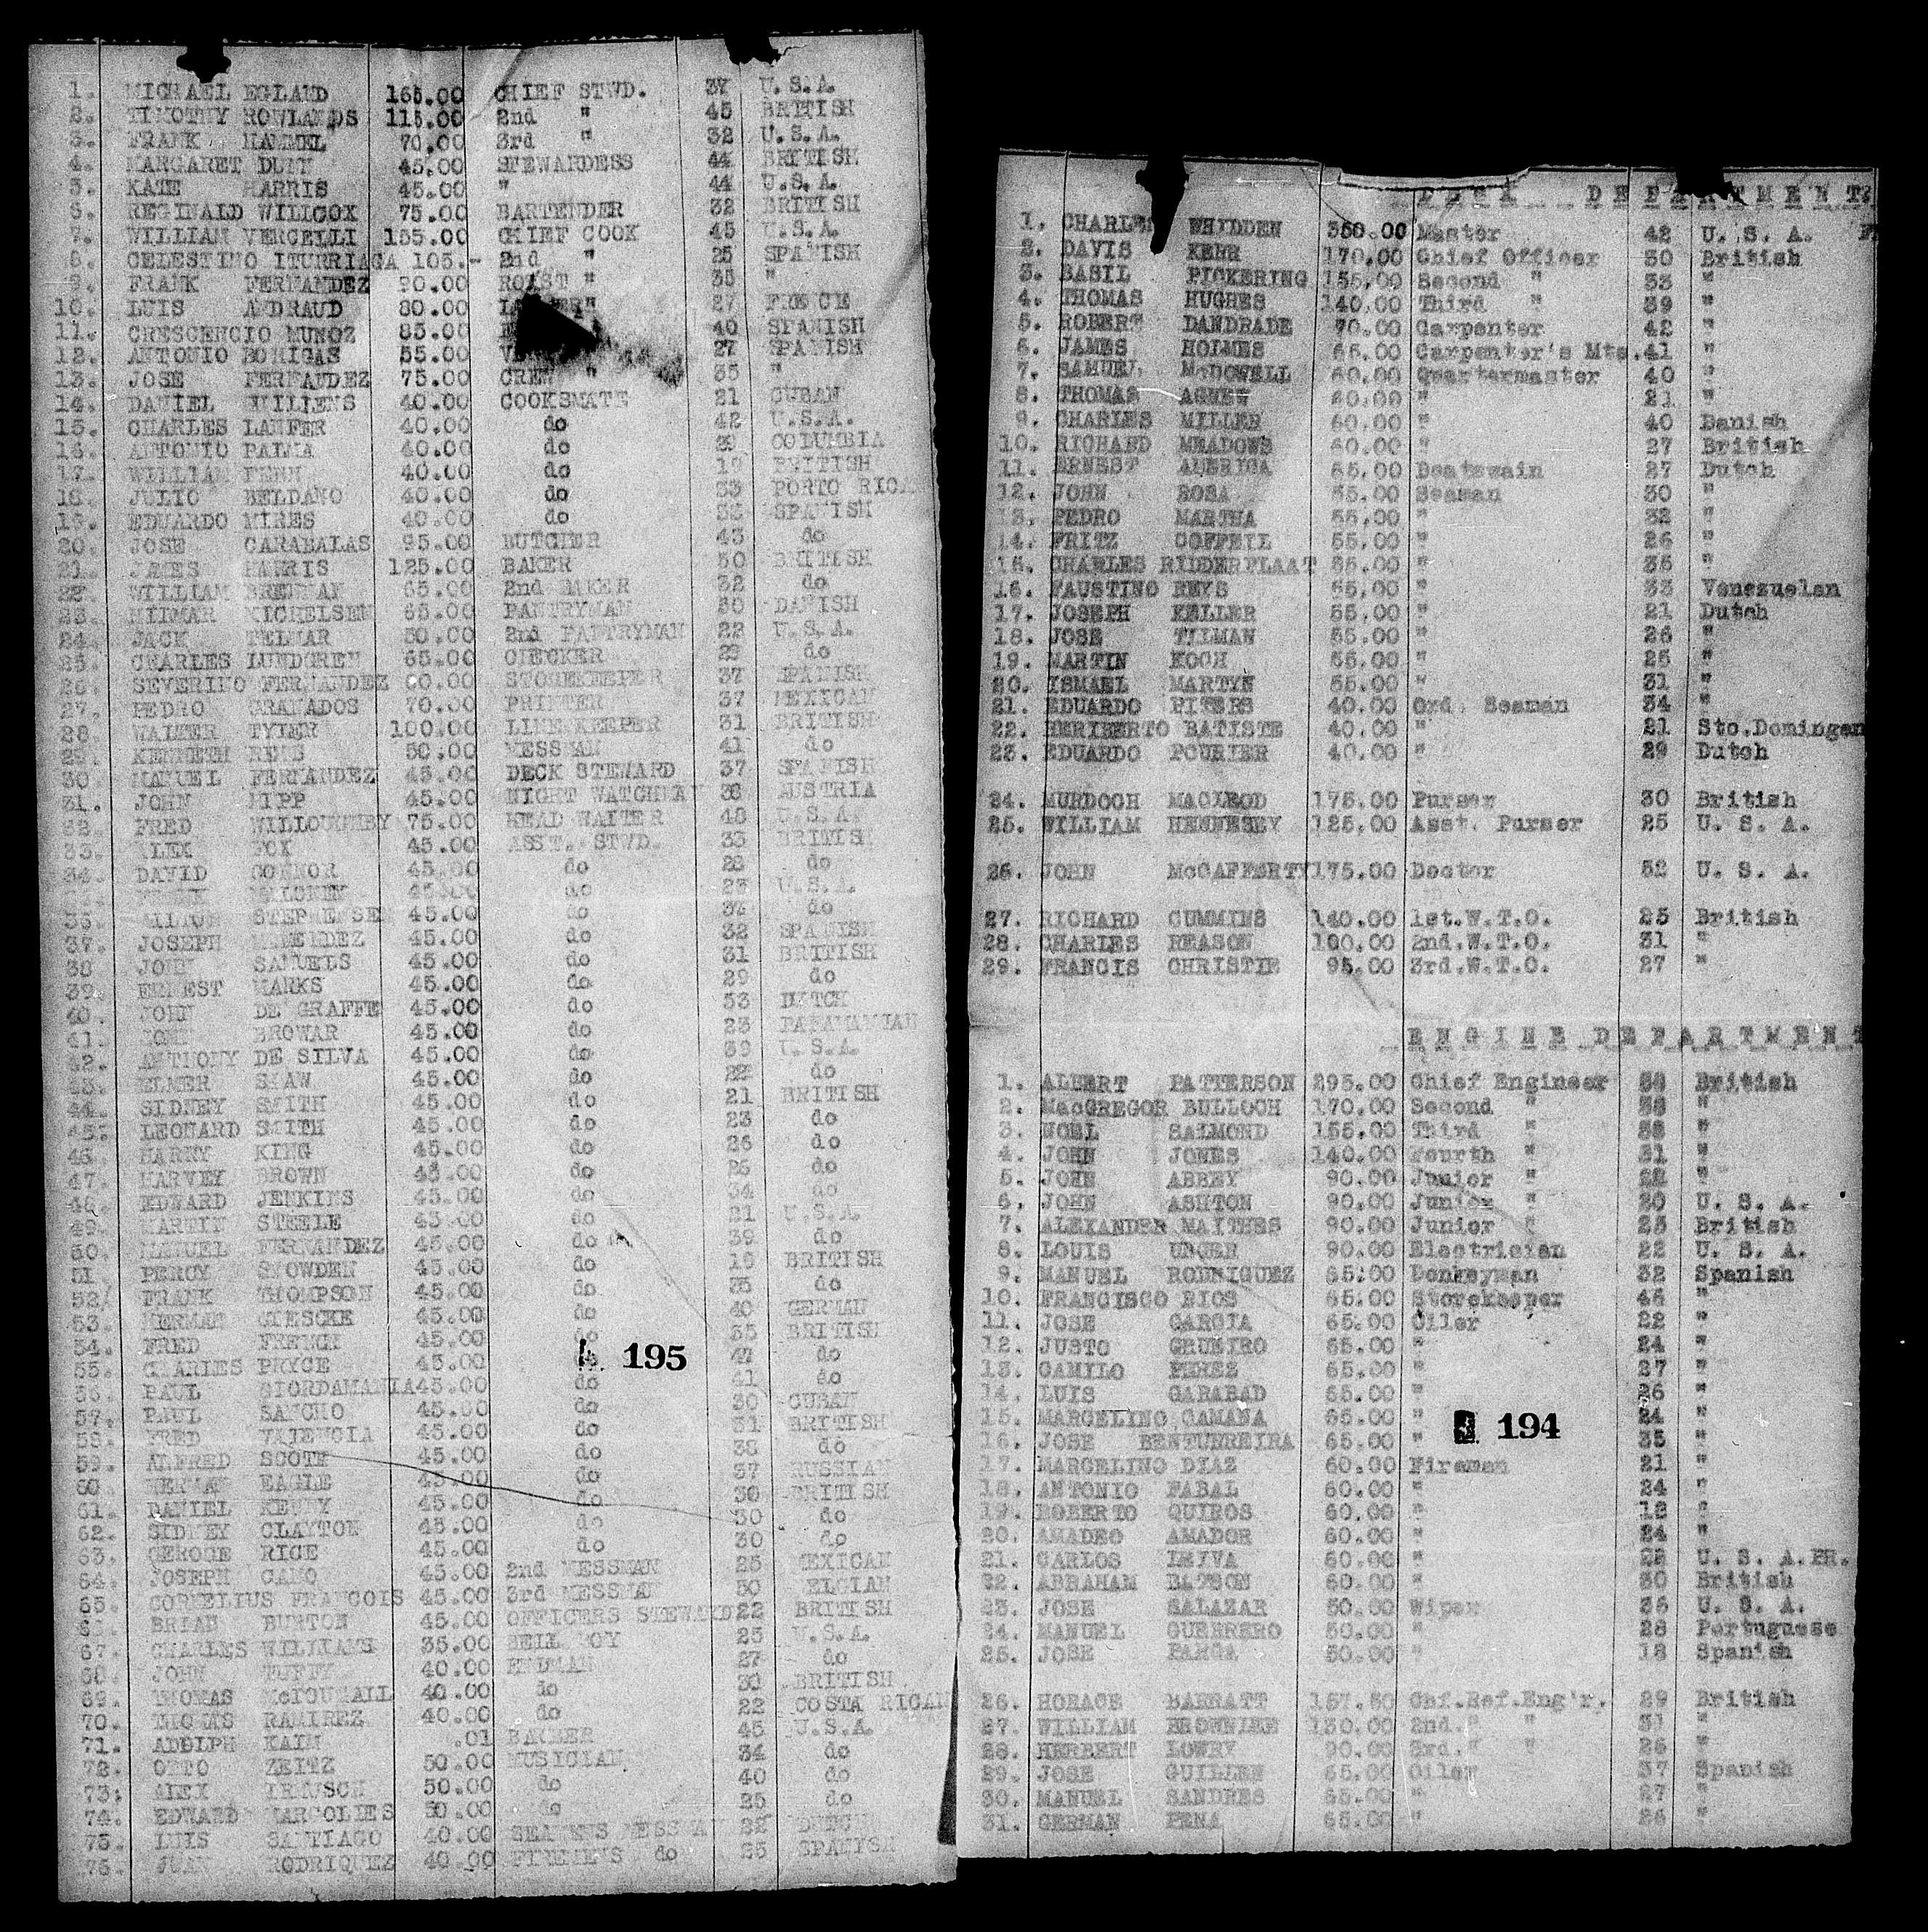 1. MICHAEL EGLAND 165.00 CHIEF STWD. 37 U.S.A.
2. TIMOTHY ROWLANDS 115.00 2nd " 45 BRITISH
3. FRANK HAMMEL 70.00 3rd " 32 U.S.A.
4. MARGARET DUFY 45.00 STEWARDESS 44 BRITISH
5. KATE HARRIS 45.00 " 44 U.S.A.
6. REGINALD WILLCOX 75.00 BARTENDER 32 BRITISH
7. WILLIAM VERCELLI 155.00 CHIEF COOK 45 U.S.A.
8. CELESTINO ITURRIAGA 105.- 2nd " 25 SPANISH
9. FRANK FERNANDEZ 90.00 ROAST " 35 "
10. LUIS ANDRAUD 80.00 " 27 FRENCE
11. CRESCENCIO MUNOZ 85.00 40 SPANISH
12. ANTONIO BORIGAS 55.00 27 SPANISH
13. JOSE FERNANDEZ 75.00 CREW " 35 "
14. DANIEL 40.00 COOKSMATE 21 CUBAN
15. CHARLES LAUFER 40.00 do 42 U.S.A.
16. ANTONIO PALMA 40.00 do 29 COLUMBIA
17. WILLIAM FENN 40.00 do 19 BRITISH
18. JULIO BELDANO 40.00 do 33 PORTO RICA
19. EDUARDO MIRES 40.00 do 32 SPANISH
20. JOSE CARABALAS 95.00 BUTCHER 43 do
21. JAMES HARRIS 125.00 BAKER 50 BRITISH
22. WILLIAM BRENNAN 65.00 2nd BAKER 32 do
23. HILMAR MICHELSEN 65.00 PANTRYMAN 30 DANISH
24. JACK TELMAR 50.00 2nd PANTRYMAN 22 U.S.A.
25. CHARLES LUNDGREN 65.00 CHECKER 29 do
26. SEVERINO FERNANDEZ 60.00 STOREKEEPER 37 SPANISH
27. PEDRO GRANADOS 70.00 PRINTER 37 MEXICAN
28. WALTER TYLER 100.00 LINENKEEPER 31 BRITISH
29. KENNETH 50.00 MESSMAN 41 do
30. MANUEL FERNANDEZ 45.00 DECK STEWARD 37 SPANISH
31. JOHN HIPP 45.00 NIGHT WATCHMAN 38 AUSTRIA
32. FRED WILLOUGHBY 75.00 HEAD WAITER 48 U.S.A.
33. ALEX FOX 45.00 ASST. STWD. 33 BRITISH
34. DAVID CONNOR 45.00 do 28 do
FRANK MALONEY 45.00 do 23 U.S.A.
36. MILTON STEPHENSEN 45.00 do 32 do
37. JOSEPH MENENDEZ 45.00 do 32 SPANISH
38 JOHN SAMUELS 45.00 do 31 BRITISH
39. ERNEST MARKS 45.00 do 29 do
40. JOHN DE GRAFFE 45.00 do 53 DUTCH
41. JOHN BROWAR 45.00 do 23 PANAMANIAN
42. ANTHONY DE SILVA 45.00 do 39 U.S.A.
43. ELMER SHAW 45.00 do 22 do
44. SIDNEY SMITH 45.00 do 21 BRITISH
45. LEONARD SMITH 45.00 do 23 do
46. HARRY KING 45.00 do 26 do
47. HARVEY BROWN 45.00 do 26 do
48. EDWARD JENKINS 45.00 do 34 do
49. MARTIN STEELE 45.00 do 21 U.S.A.
50. MANUEL FERNANDEZ 45.00 do 39 do
51 PERCY SNOWDEN 45.00 do 19 BRITISH
52. FRANK THOMPSON 45.00 do 35 do
53. HERMAN GIESCKE 45.00 do 40 GERMAN
54. FRED FRENCH 45.00 do 35 BRITISH
55. CHARLES PRYCE 45.00 do 47 do
56. PAUL GIORDAMANIA 45.00 do 41 do
57. PAUL SANCHO 45.00 do 30 CUBAN
58. FRED VALENCIA 45.00 do 31 BRITISH
59. ALFRED SCOTH 45.00 do 38 do
60 HERMAN EAGLE 45.00 do 37 RUSSIAN
61. DANIEL KENNY 45.00 do 30 BRITISH
62. SIDNEY CLAYTON 45.00 do 30 do
63. GEROGE RICE 45.00 do 30 do
64. JOSEPH CAMO 45.00 2nd MESSMAN 25 MEXICAN
65. CORNELIUS FRANCOIS 45.00 3rd MESSMAN 50 BELGIAN
66. BRIAN BURTON 45.00 OFFICERS STEWARD 22 BRITISH
67. CHARLES WILLIAMS 35.00 BELL BOY 25 U.S.A.
68. JOHN DUFFY 40.00 27 do
69. THOMAS McDOUGALL 40.00 do 30 BRITISH
70. THOMAS RAMIREZ 40.00 do 22 COSTA RICAN
71. ADOLPH KAIM .01 BARBER 45 U.S.A.
72. OTTO ZEITZ 50.00 MUSICIAN 34 do
73. ALEX 50.00 do 40 do
74. EDWARD MARGOLIES 50.00 do 25 do
75. LUIS SANTIAGO 40.00 SEAMENS MESSMAN 22 DUTCH
76. JUAN RODRIQUEZ 40.00 FIREMENS do 25 SPANISH
195
DECK DEPARTMENT
1. CHARLES WHIDDEN 350.00 Master 42 U. S. A.
2. DAVIS KERR 170.00 Chief Officer 30 British
3. BASIL PICKERING 155.00 Second " 33 "
4. THOMAS HUGHES 140.00 Third " 39 "
5. ROBERT DANDRADE 70.00 Carpenter 42 "
6. JAMES HOLMES 65.00 Carpenter's Mte. 41 "
7. SAMUEL McDOWELL 60.00 Quartermaster 40 "
8. THOMAS AGNEW 60.00 " 21 "
9. CHARLES MILLER 60.00 " 40 Danish
10. RICHARD MEADOWS 60.00 " 27 British
11. ERNEST AMERICA 65.00 Boatswain 27 Dutch
12. JOHN ROSA 55.00 Seaman 30 "
13. PEDRO MARTHA 55.00 " 32 "
14. FRITZ COFFEIL 55.00 " 26 "
15. CHARLES RIDDERPLAAT 55.00 " 35 "
16. FAUSTINO REYS 55.00 " 33 Venezuelan
17. JOSEPH KELLER 55.00 " 21 Dutch
18. JOSE TILMAN 55.00 " 26 "
19. MARTIN KOCH 55.00 " 25 "
20. ISMAEL MARTYN 55.00 " 31 "
21. EDUARDO PITERS 40.00 Ord. Seaman 34 "
22. HERIBERTO BATISTE 40.00 " 21 Sto.Domingan
23. EDUARDO POURIER 40.00 " 29 Dutch
24. MURDOCH MACLEOD 175.00 Purser 30 British
25. WILLIAM HENNESEY 125.00 Asst. Purser 25 U. S. A.
26. JOHN McCAFFERTY 175.00 Doctor 52 U. S. A.
27. RICHARD CUMMINS 140.00 1st.W.T.O. 25 British
28. CHARLES REASON 100.00 2nd.W.T.O. 31 "
29. FRANCIS CHRISTIE 95.00 3rd.W.T.O. 27 "
ENGINE DEPARTMENT
1. ALBERT PATTERSON 295.00 Chief Engineer British
2. MacGREGOR BULLOCH 170.00 Second " "
3. NOEL SALMOND 155.00 Third " "
4. JOHN JONES 140.00 Fourth " 31 "
5. JOHN ABBEY 90.00 Junior " 22 "
6. JOHN ASHTON 90.00 Junior " 20 U. S. A.
7. ALEXANDER MAITHES 90.00 Junior " 25 British
8. LOUIS UNGER 90.00 Electrician 22 U. S. A.
9. MANUEL RODRIGUEZ 65.00 Donkeyman 32 Spanish
10. FRANCISCO RIOS 65.00 Storekeeper 46 "
11. JOSE GARCIA 65.00 Oiler 22 "
12. JUSTO GRUEIRO 65.00 " 24 "
13. CAMILO PEREZ 65.00 " 27 "
14. LUIS GARABAD 65.00 " 26 "
15. MARCELINO CAMANA 65.00 " 24 "
16. JOSE BENTURREIRA 65.00 " 35 "
17. MARCELINO DIAZ 60.00 Fireman 21 "
18. ANTONIO FABAL 60.00 " 24 "
19. ROBERTO QUIROS 60.00 " 18 "
20. AMADEO AMADOR 60.00 " 24 "
21. CARLOS 60.00 " 22 U. S. A.PR.
22. ABRAHAM BATSON 60.00 " 30 British
23. JOSE SALAZAR 50.00 Wiper 36 U. S. A.
24. MANUEL GUERRERO 50.00 " 28 Portuguese
25. JOSE FARGA 50.00 " 18 Spanish
26. HORACE BARRATT 157.50 Chf.Ref.Eng'r. 29 British
27. WILLIAM BROWNLEE 130.00 2nd." " 31 "
28. HERBERT LOWRY 90.00 3rd." " 26 "
29. JOSE GUILLEN 65.00 Oiler 37 Spanish
30. MANUEL SANDRES 65.00 " 27 "
31. GERMAN PENA 65.00 " 26 "
194